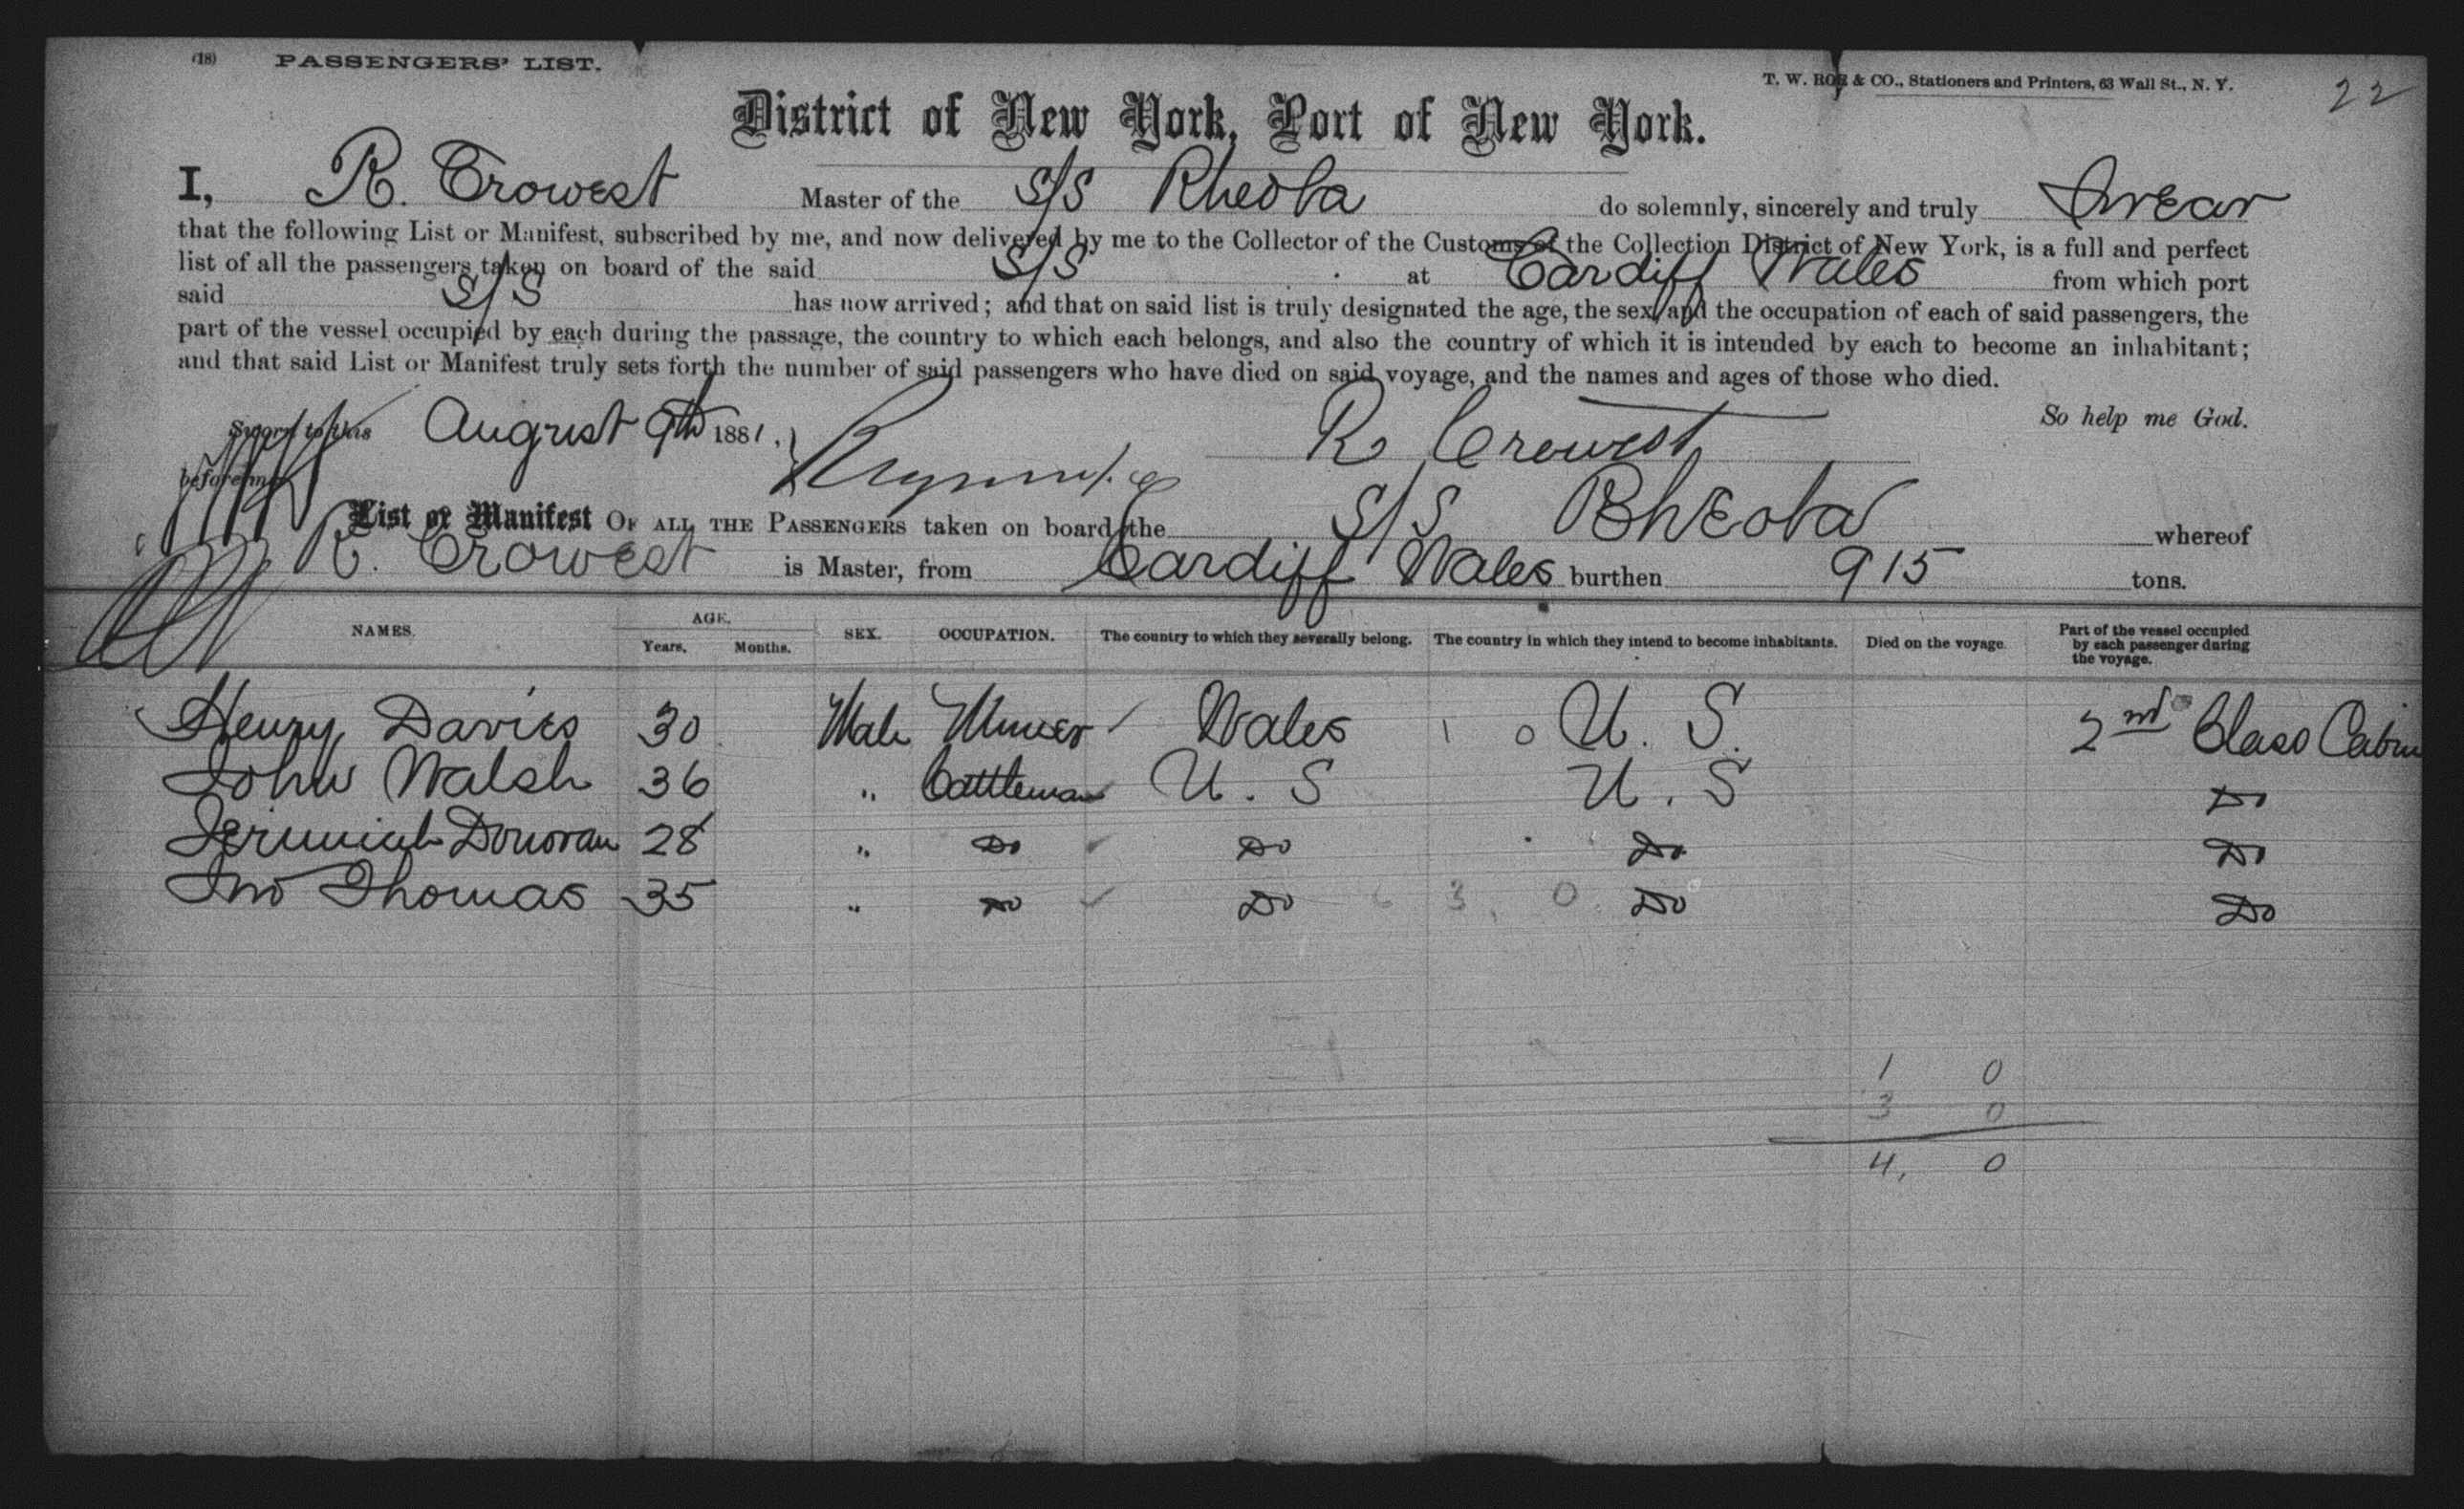 (18) PASSENGERS' LIST.
T. W. ROE & CO., Stationers and Printers, 63 Wall St., N. Y.
22
District of New York, Port of New York.
I, R. Crowest Master of the S/S Rheola do solemnly, sincerely and truly Swear
that the following List or Manifest, subscribed by me, and now delivered by me to the Collector of the Customs of the Collection District of New York, is a full and perfect
list of all the passengers taken on board of the said S/S at Cardiff Wales from which port
said S/S has now arrived; and that on said list is truly designated the age, the sex, and the occupation of each of said passengers, the
part of the vessel occupied by each during the passage, the country to which each belongs, and also the country of which it is intended by each to become an inhabitant;
and that said List or Manifest truly sets forth the number of said passengers who have died on said voyage, and the names and ages of those who died.
So help me God.
Sworn to this August 9th 1881,
before me R Crowest
List or Manifest OF ALL THE PASSENGERS taken on board the S/S Rheola whereof
R. Crowest is Master, from Cardiff Wales burthen 915 tons.
NAMES. AGE. Years. Months. SEX. OCCUPATION. The country to which they severally belong. The country in which they intend to become inhabitants. Died on the voyage. Part of the vessel occupied by each passenger during the voyage.
Henry Davies 30 Male Miner Wales 1 0 U. S. 2nd Class Cabin
John Walsh 36 " Cattleman U. S U. S Do
Jerimiah Donovan 28 " Do Do Do Do
Jno Thomas 35 " Do Do 3, 0 Do Do
1 0
3 0
4, 0